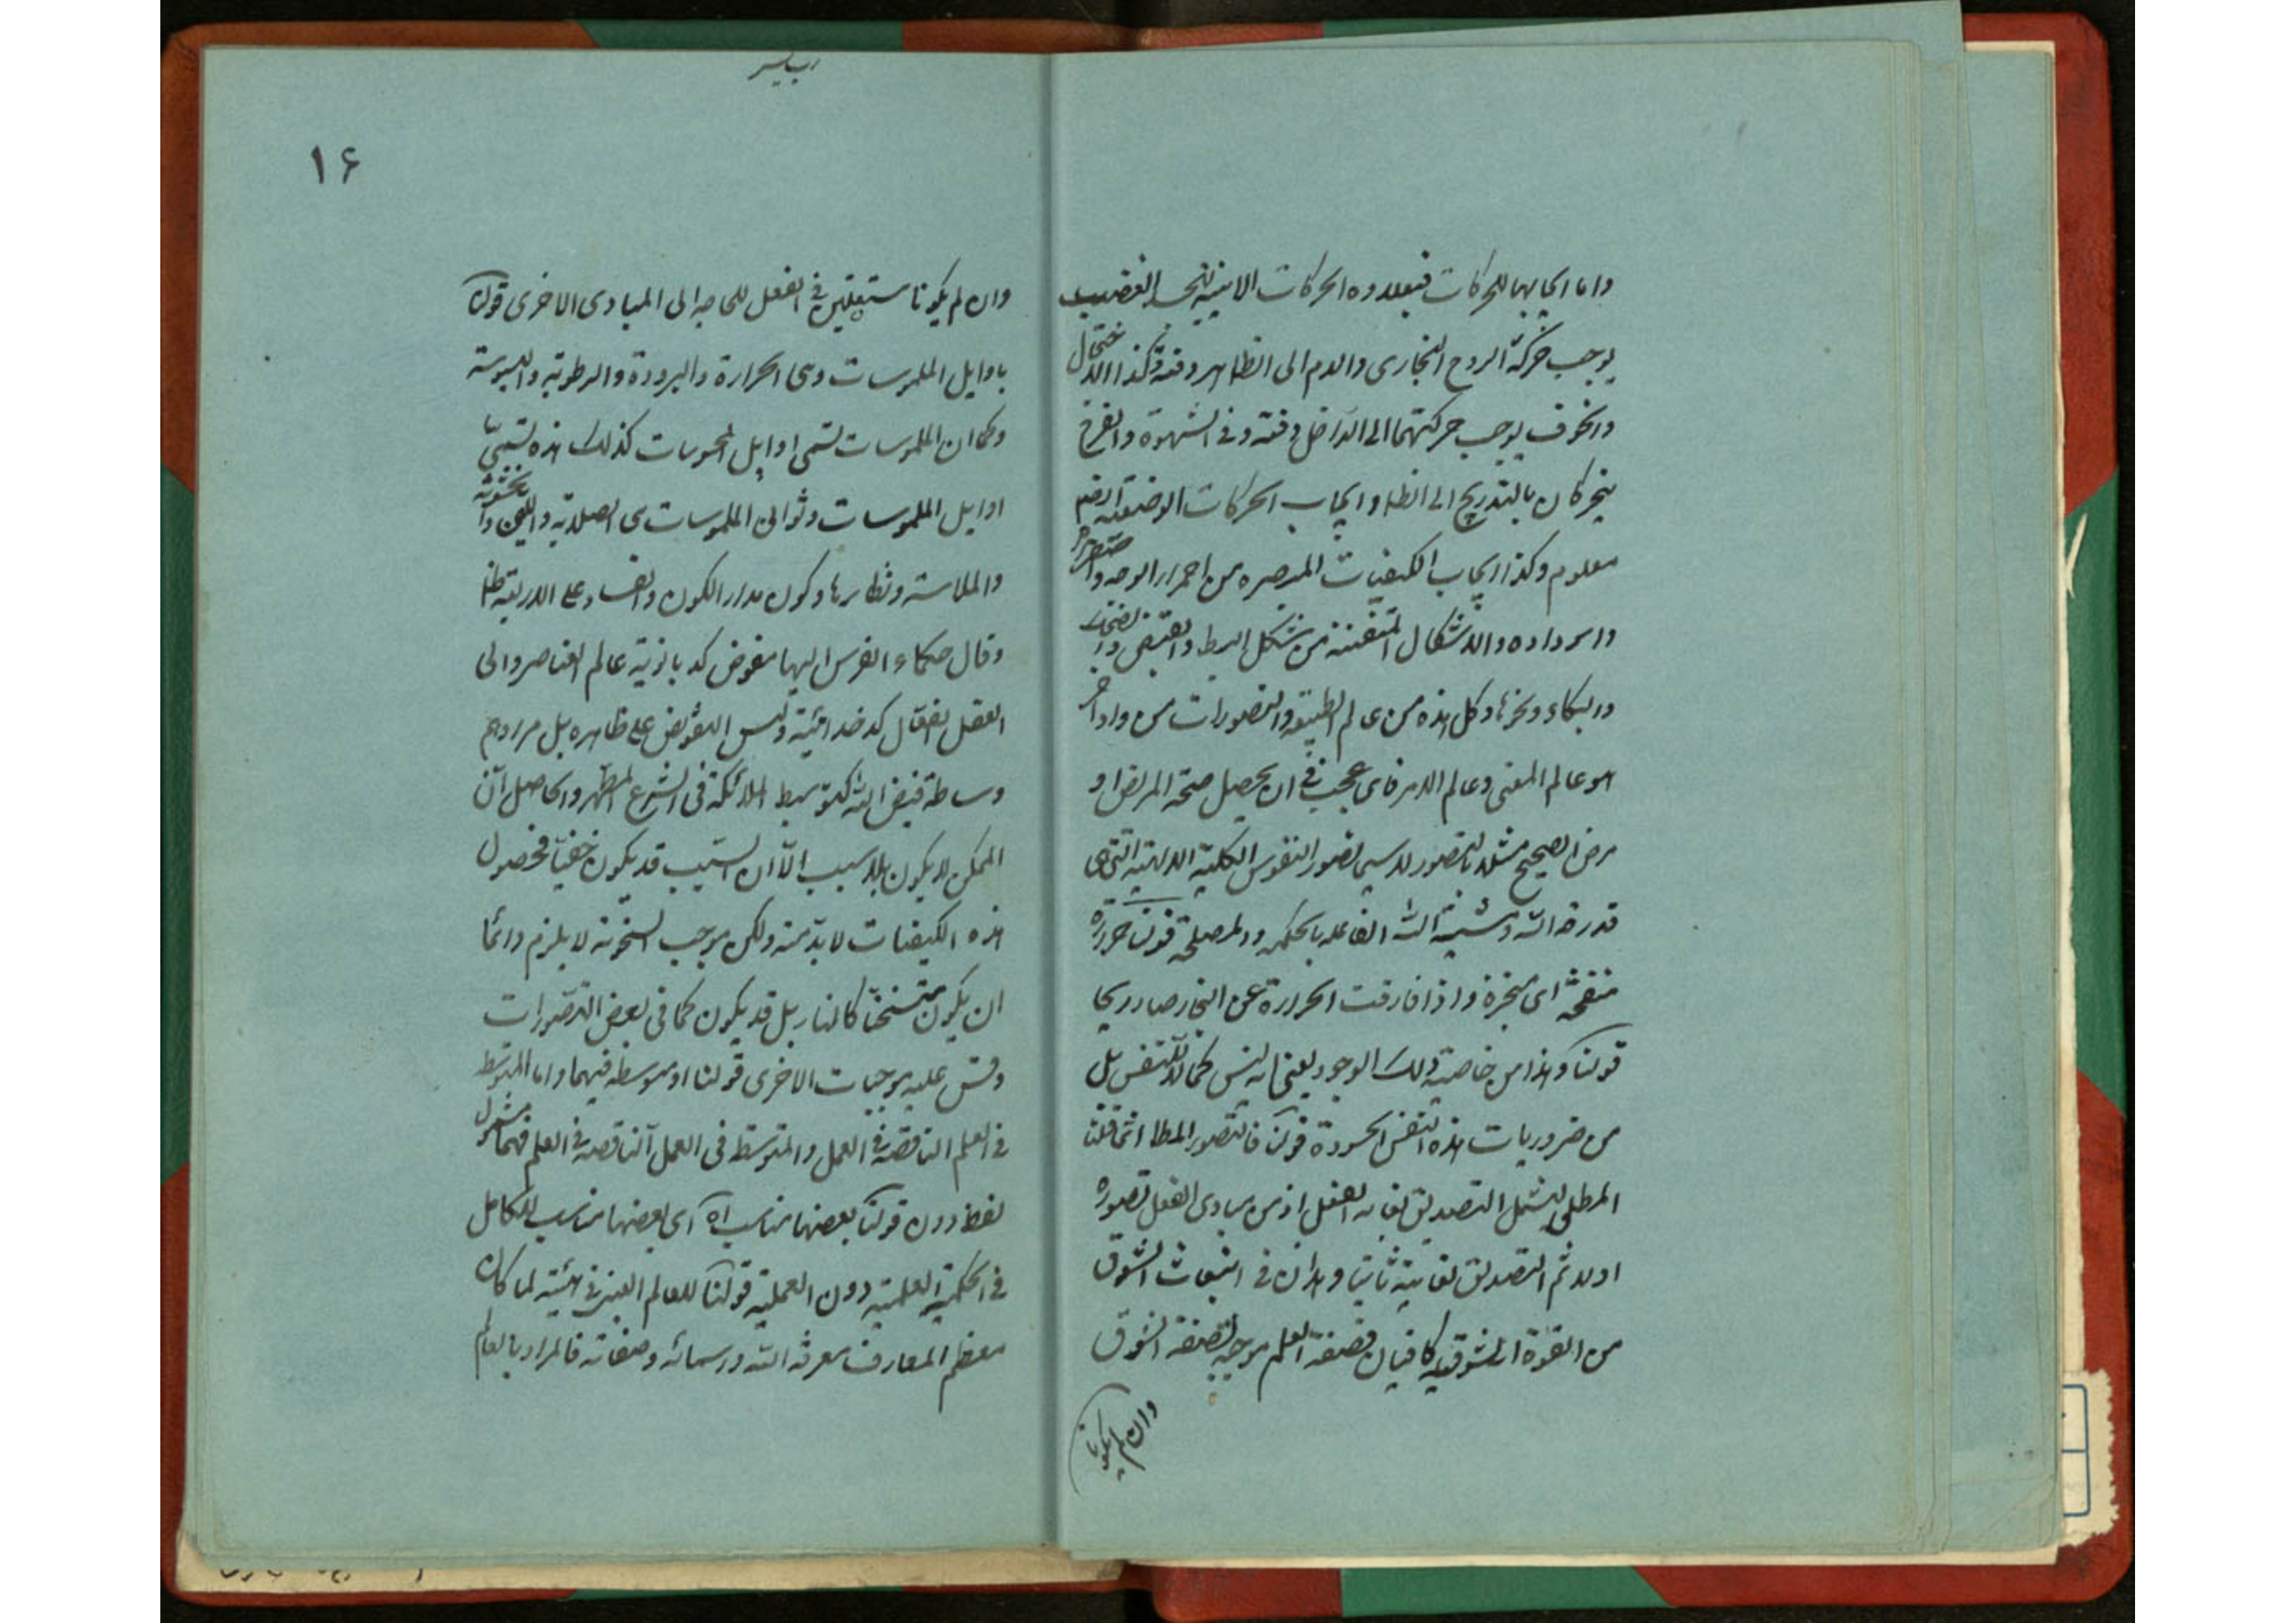 واما ايجابها للحركات فتعلده الحركات الاينية الغضب
يوجب حركة الروح البخاری والدم الی الظاهر دفعة وكذا
والخوف يوجب حركتهما الی الداخل دفعة وفی الشهوة والفرح
يتحركان بالتدريج الی الظاهر وايجاب الحركات الوضعية
معلوم وكذا ايجاب الكيفيات المبصرة من احمرار الوجه واصفراره
واسوداده والاشكال المتفننة من شكل البسط والقبض والضحك
والبكاء ونحوها وكل هذه من عالم الطبيعة والتصورات من واد آخر
هو عالم المعنی وعالم الامر فای عجب فی ان يحصل صحة المريض او
مرض الصحيح مثلا بالتصور لاسيما تصور النفوس الكلية الالهية التی هی
قدرة الله ومشية الله الفاعلة بالحكمة والمصلحة قولنا حرارة
منفخة ای مبخرة واذا فارقت الحرارة عن البخار صار ريحا
قولنا وهذا من خاصية ذلك الوجود يعنی انه ليس كمالا للنفس بل
من ضروريات هذه النفس الحسودة قولنا فالتصور المطا انما قلنا
المطلق ليشمل التصديق بغاية الفعل اذ من مبادی الفعل تصوره
اولا ثم التصديق بغايته ثانيا وهذان فی انبعاث الشوق
من القوة الشوقية كافيان فصفة العلم موجبة لصفة الشوق
وان لم يكونا
۱۶
وان لم يكونا مستقلين فی الفعل للحاجة الی المبادی الاخری قولنا
باوايل الملموسات وهی الحرارة والبرودة والرطوبة واليبوسة
وكما ان الملموسات تسمی اوايل المحسوسات كذلك هذه تسمی
اوايل الملموسات وثوانی الملموسات هی الصلابة واللين والخشونة
والملاسة ونظايرها وكون مدار الكون والفساد علی الاربعة
وقال حكماء الفرس اليها مفوض كدبانوية عالم العناصر والی
العقل الفعال كدخدائيته وليس التفويض علی ظاهره بل مرادهم
وساطة فيض الله كتوسيط الملائكة فی الشرع المطهر والحاصل ان
الممكن لا يكون بلا سبب الا ان السبب قد يكون خفيا فحصول
هذه الكيفيات لابد منه ولكن موجب السخونة لا يلزم دائما
ان يكون متسخنا كالنار بل قد يكون كما فی بعض التصورات
وقس عليه موجبات الاخری قولنا او متوسطة فيهما واما المتوسطة
فی العلم الناقصة فی العمل والمتوسطة فی العمل الناقصة فی العلم فهما
لفظ دون قولنا بعضها مناسب اه ای بعضها مناسب للكامل
فی الحكمة العلمية دون العملية قولنا للعالم العينی فی هيئته لما كان
معظم المعارف معرفة الله واسمائه وصفاته فالمراد بالعالم